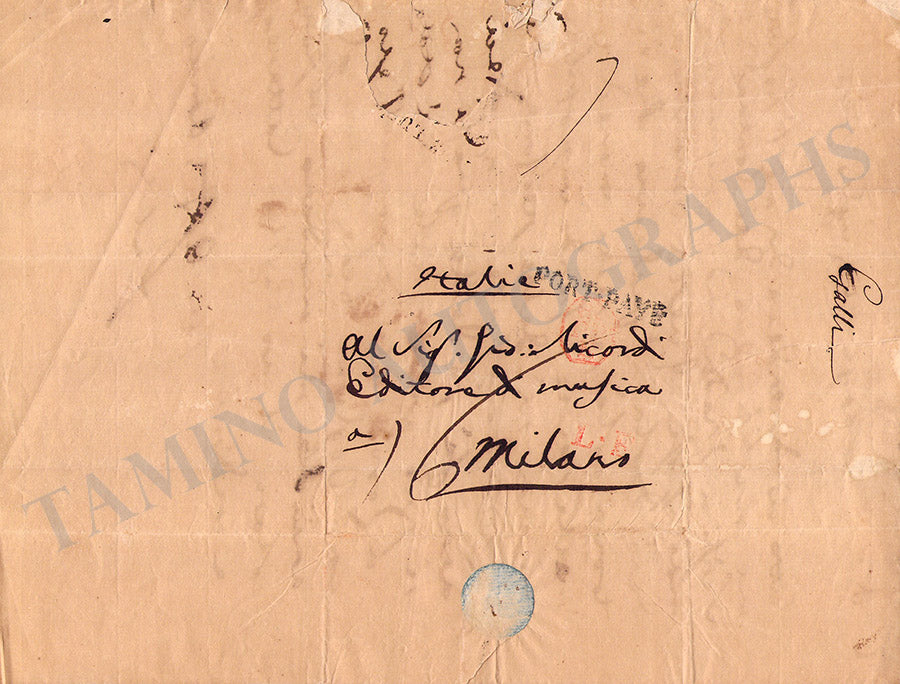 Italie
PORT-PAYÉ
Al Sig: Gio: Ricordi
Editore di musica
a)
Milano
L. F
Galli
TAMINO AUTOGRAPHS